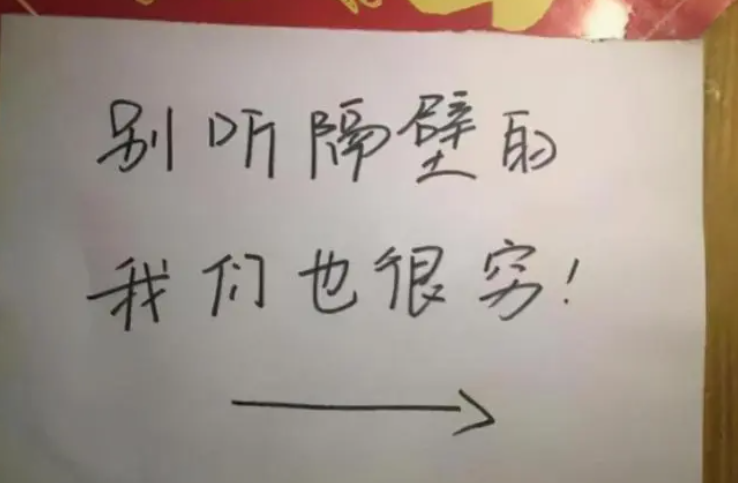 别听隔壁的
我们也很穷!
→